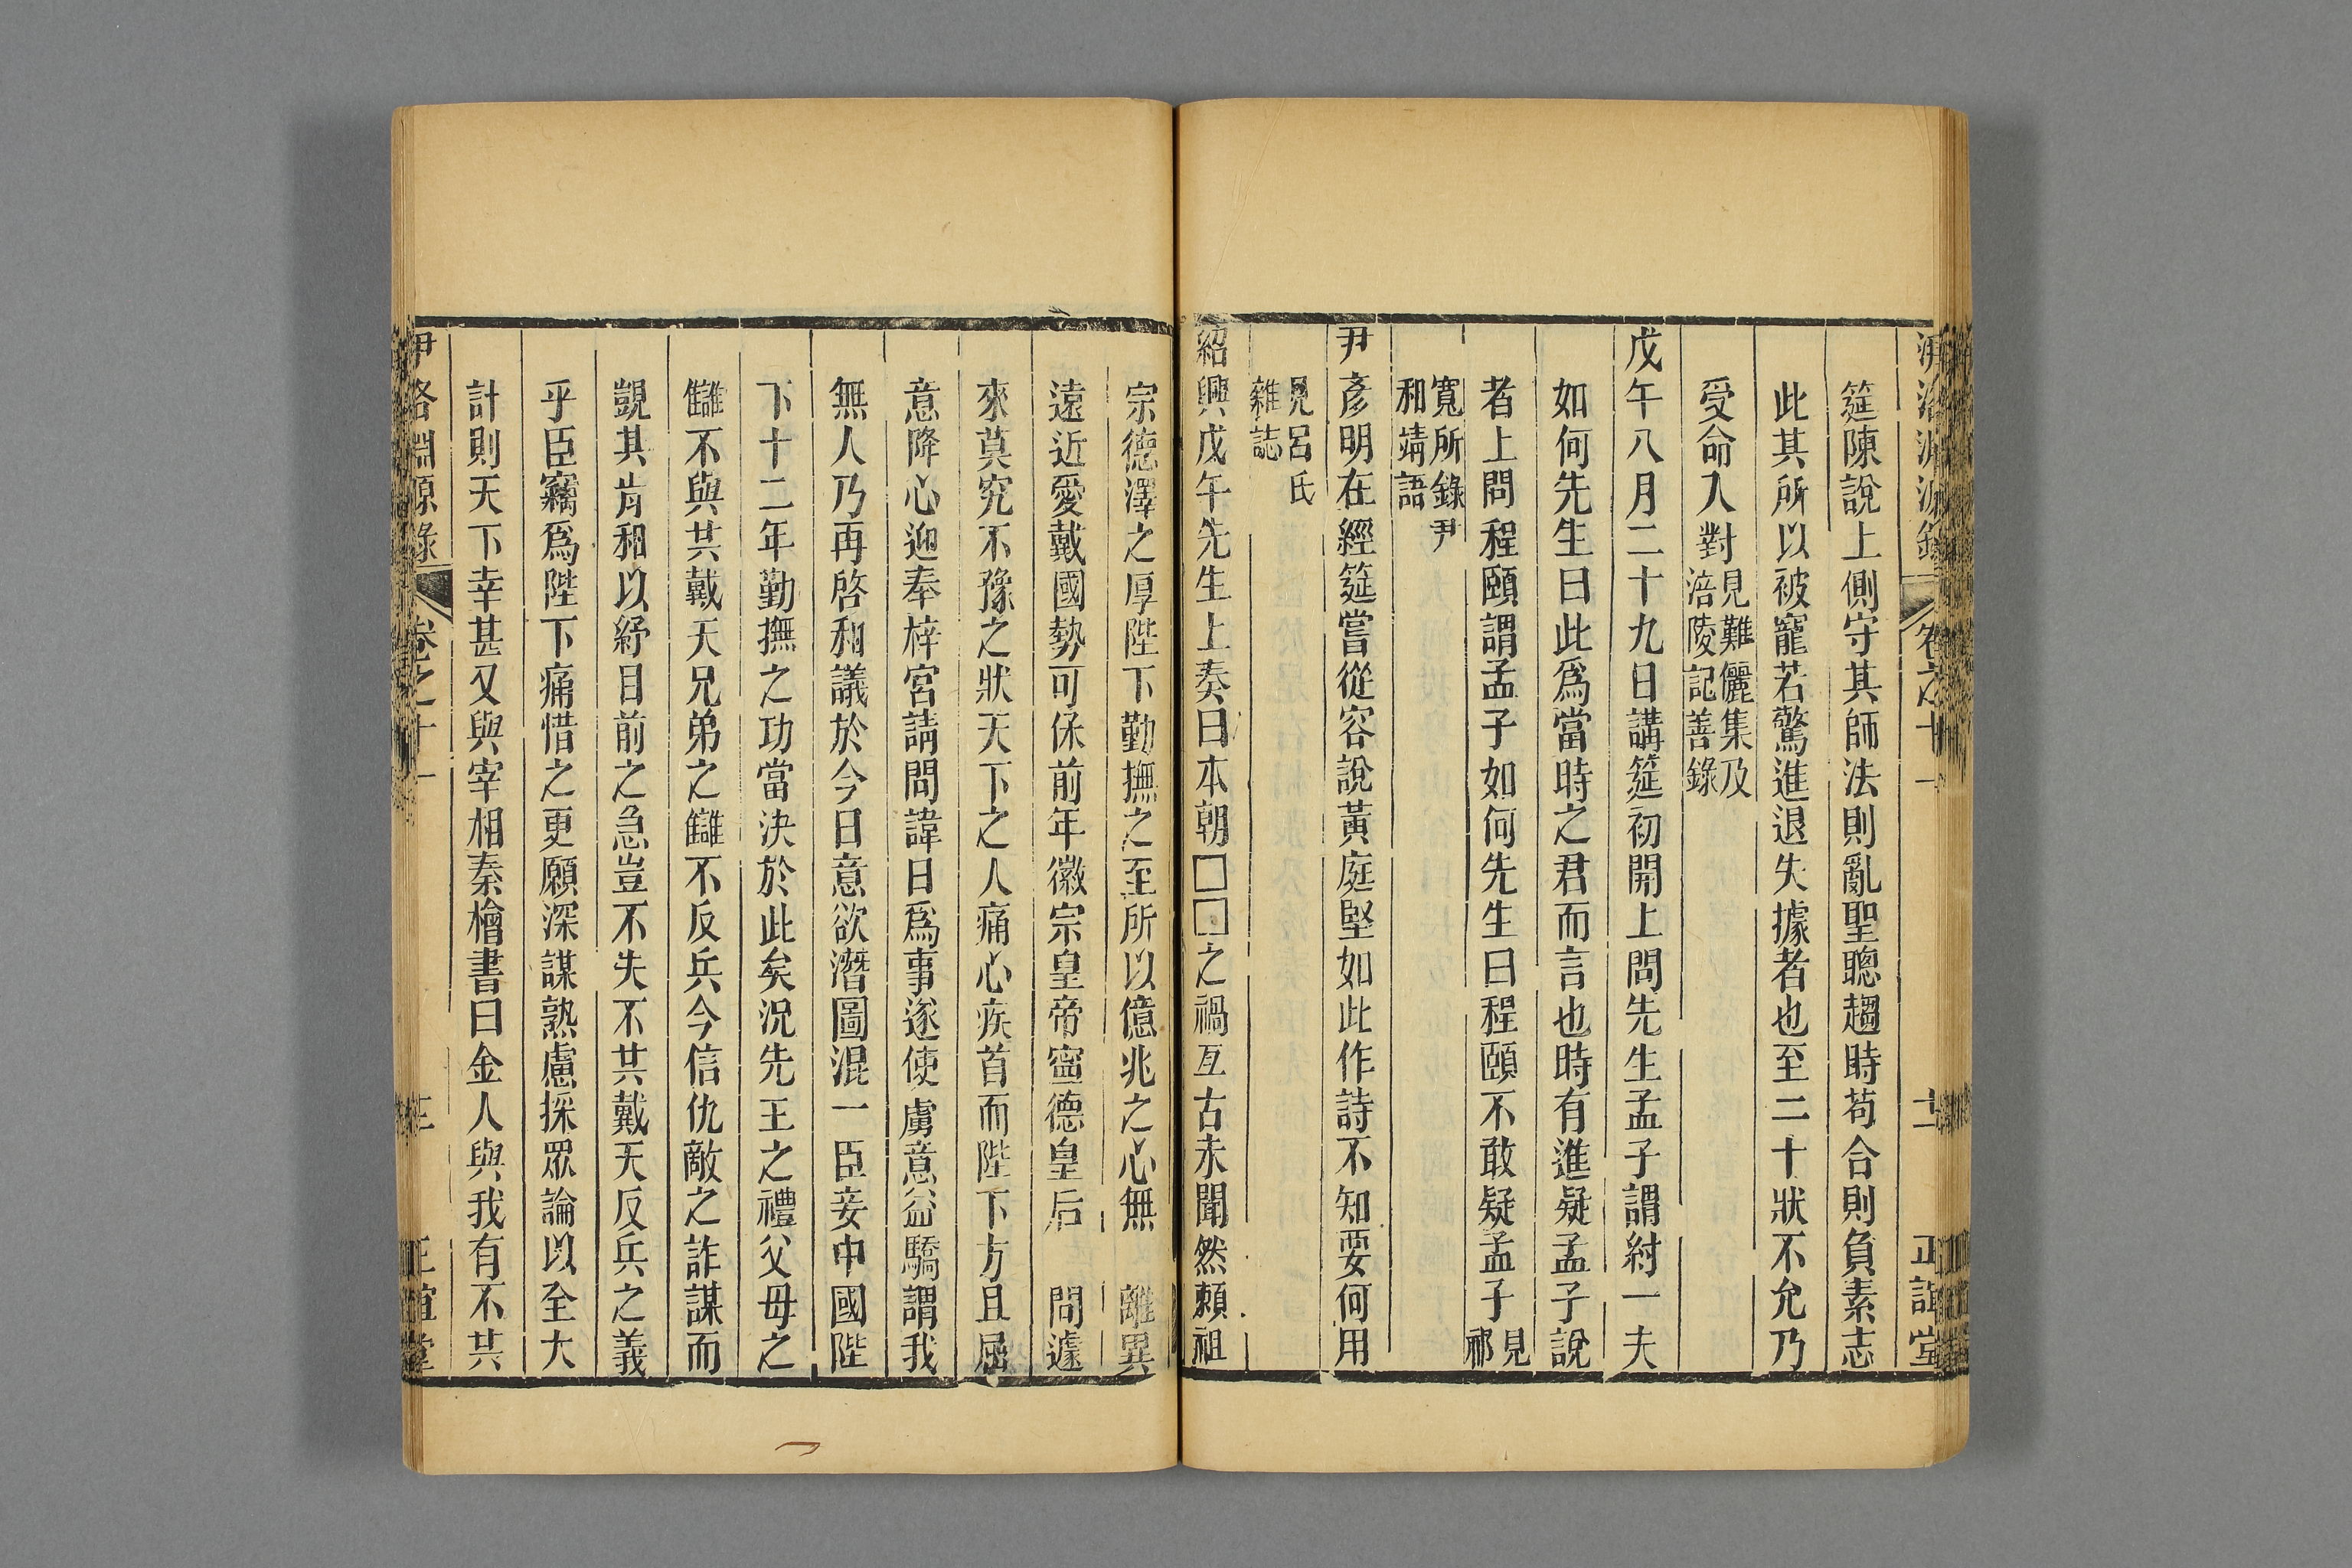 伊洛淵源錄 卷之十一 十二 正誼堂
筵陳說上側守其師法則亂聖聰趨時苟合則負素志
此其所以被寵若驚進退失據者也至二十狀不允乃
受命入對見難儷集及涪陵記善錄
戊午八月二十九日講筵初開上問先生孟子謂紂一夫
如何先生曰此爲當時之君而言也時有進疑孟子說
者上問程頤謂孟子如何先生曰程頤不敢疑孟子見祁
寬所錄尹和靖語
尹彥明在經筵嘗從容說黃庭堅如此作詩不知要何用
見呂氏雜誌
紹興戊午先生上奏曰本朝□□之禍亙古未聞然頼祖
宗德澤之厚陛下勤撫之至所以億兆之心無 離異
遠近愛戴國勢可保前年徽宗皇帝寧德皇后 問遽
來莫究不豫之狀天下之人痛心疾首而陛下方且屈
意降心迎奉梓宮請問諱日爲事遂使虜意益驕謂我
無人乃再啓和議於今日意欲潛圖混一臣妾中國陛
下十二年勤撫之功當決於此矣況先王之禮父母之
讎不與共戴天兄弟之讎不反兵今信仇敵之詐謀而
覬其肯和以紓目前之急豈不失不共戴天反兵之義
乎臣竊爲陛下痛惜之更願深謀熟慮採眾論以全大
計則天下幸甚又與宰相秦檜書曰金人與我有不共
伊洛淵源錄 卷之十一 正誼堂